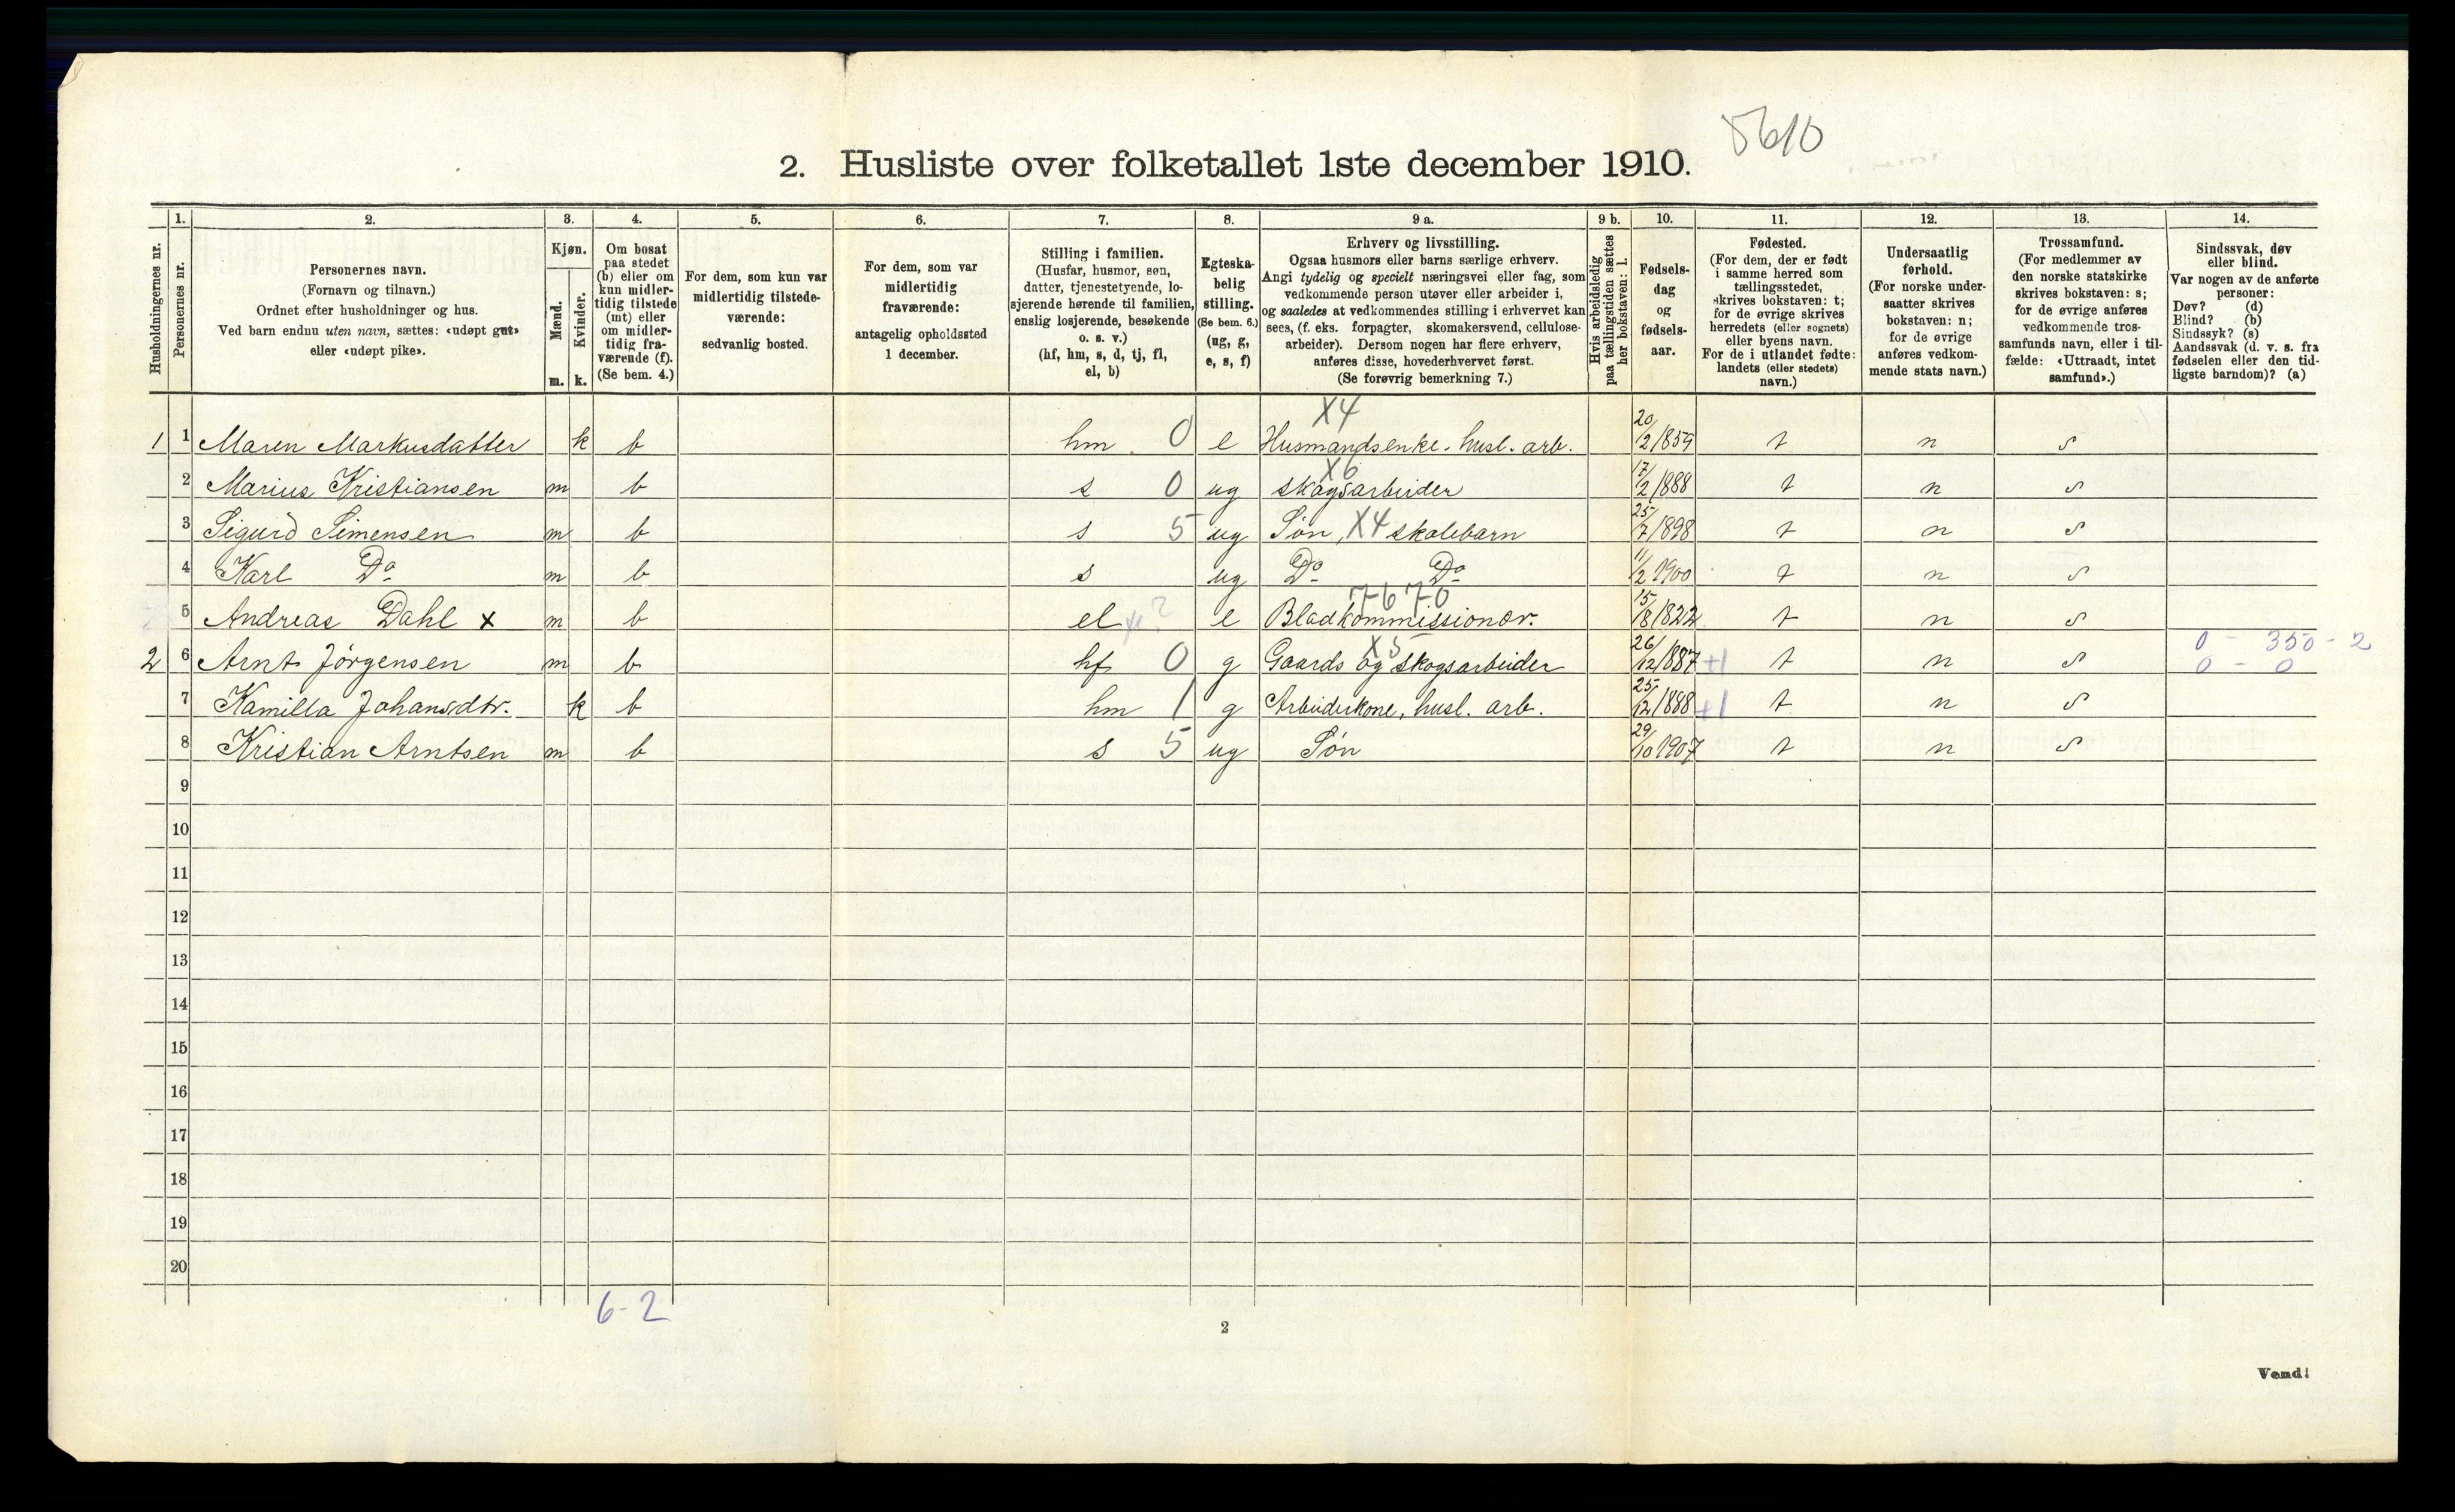 5610
2. Husliste over folketallet 1ste december 1910.
Husholdningernes nr.
1. Personernes nr.
2. Personernes navn.
(Fornavn og tilnavn.)
Ordnet efter husholdninger og hus.
Ved barn endnu uten navn, sættes: «udøpt gut»
eller «udøpt pike».
3. Kjøn.
Mænd. m.
Kvinder. k.
4. Om bosat
paa stedet
(b) eller om
kun midler-
tidig tilstede
(mt) eller
om midler-
tidig fra-
værende (f).
(Se bem. 4.)
5. For dem, som kun var
midlertidig tilstede-
værende:
sedvanlig bosted.
6. For dem, som var
midlertidig
fraværende:
antagelig opholdssted
1 december.
7. Stilling i familien.
(Husfar, husmor, søn,
datter, tjenestetyende, lo-
sjerende hørende til familien,
enslig losjerende, besøkende
o. s. v.)
(hf, hm, s, d, tj, fl,
el, b)
8. Egteska-
belig
stilling.
(Se bem. 6.)
(ug, g,
e, s, f)
9 a. Erhverv og livsstilling.
Ogsaa husmors eller barns særlige erhverv.
Angi tydelig og specielt næringsvei eller fag, som
vedkommende person utøver eller arbeider i,
og saaledes at vedkommendes stilling i erhvervet kan
sees, (f. eks. forpagter, skomakersvend, cellulose-
arbeider). Dersom nogen har flere erhverv,
anføres disse, hovederhvervet først.
(Se forøvrig bemerkning 7.)
9 b. Hvis arbeidsledig
paa tællingstiden sættes
her bokstaven: l.
10. Fødsels-
dag
og
fødsels-
aar.
11. Fødested.
(For dem, der er født
i samme herred som
tællingsstedet,
skrives bokstaven: t;
for de øvrige skrives
herredets (eller sognets)
eller byens navn.
For de i utlandet fødte:
landets (eller stedets)
navn.)
12. Undersaatlig
forhold.
(For norske under-
saatter skrives
bokstaven: n;
for de øvrige
anføres vedkom-
mende stats navn.)
13. Trossamfund.
(For medlemmer av
den norske statskirke
skrives bokstaven: s;
for de øvrige anføres
vedkommende tros-
samfunds navn, eller i til-
fælde: «Uttraadt, intet
samfund».)
14. Sindssvak, døv
eller blind.
Var nogen av de anførte
personer:
Døv? (d)
Blind? (b)
Sindssyk? (s)
Aandssvak (d. v. s. fra
fødselen eller den tid-
ligste barndom)? (a)
X4
1 1 Maren Markusdatter k b hm 0 e Husmandsenke. husl. arb. 20/2 1859 t n s
X6
2 Marius Kristiansen m b s 0 ug skogsarbeider 17/2 1888 t n s
3 Sigurd Simensen m b s 5 ug Søn, X4 skolebarn 25/7 1898 t n s
4 Karl Do m b s ug Do Do 11/2 1900 t n s
7670
5 Andreas Dahl x m b el e Bladkommissionær. 15/8 1822 t n s
X5
2 6 Arnt Jørgensen m b hf 0 g Gaards og skogsarbeider 26/12 1887 +1 t n s 0 - 350 - 2
0 - 0
7 Kamilla Johansdtr. k b hm 1 g Arbeiderkone, husl. arb. 25/12 1888 +1 t n s
8 Kristian Arntsen m b s 5 ug Søn 29/10 1907 t n s
9
10
11
12
13
14
15
16
17
18
19
20
6-2
2
Vend!